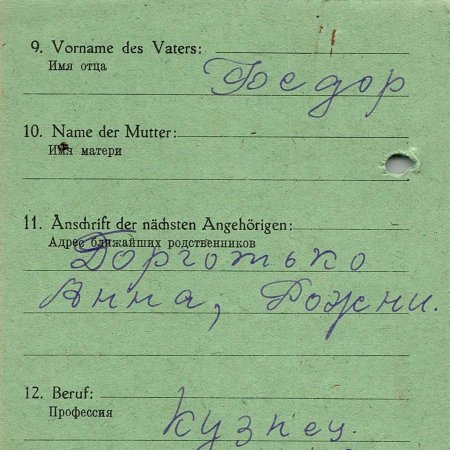 9. Vorname des Vaters:
Имя отца
Федор
10. Name der Mutter:
Имя матери
11. Anschrift der nächsten Angehörigen:
Адрес ближайших родственников
Дорготько
Анна, Рожни.
12. Beruf:
Профессия
Кузнец.